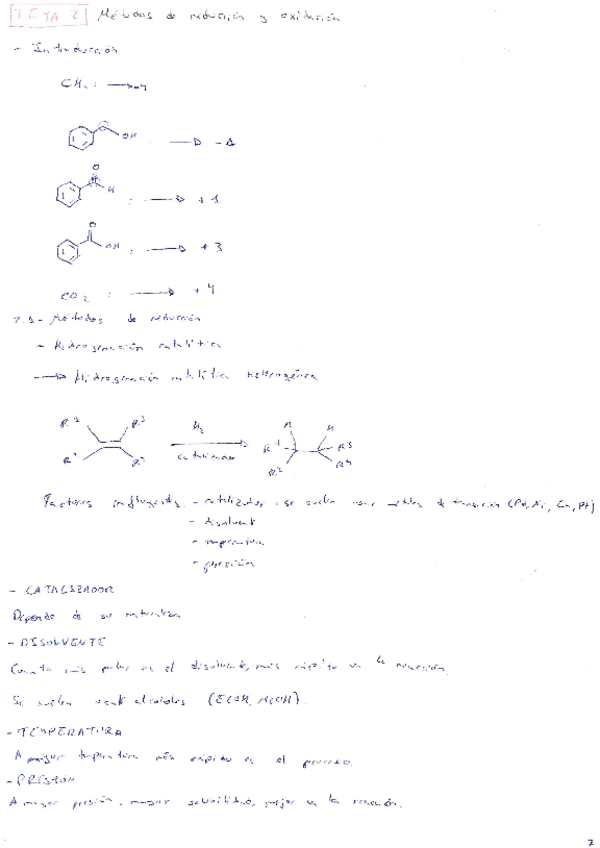 TEMA 2 Métodos de reducción y oxidación
- Introducción
CH4 : → -4
OH → -1
O
H : → +1
O
OH : → +3
CO2 : → +4
2.1- Métodos de reducción
- Hidrogenación catalítica
→ Hidrogenación catalítica heterogénea
R1 R3 H2 H H
R2 R4 catalizador R1 R3
R2 R4
Factores influyentes: - catalizador: se suelen usar metales de transición (Pd, Ni, Cu, Pt)
- disolvente
- temperatura
- presión
- CATALIZADOR
Depende de su naturaleza
- DISOLVENTE
Cuanto más polar es el disolvente, más rápido va la reacción.
Se suelen usar alcoholes (EtOH, MeOH).
- TEMPERATURA
A mayor temperatura más rápido es el proceso.
- PRESIÓN
A mayor presión, mayor solubilidad, mejor va la reacción.
7